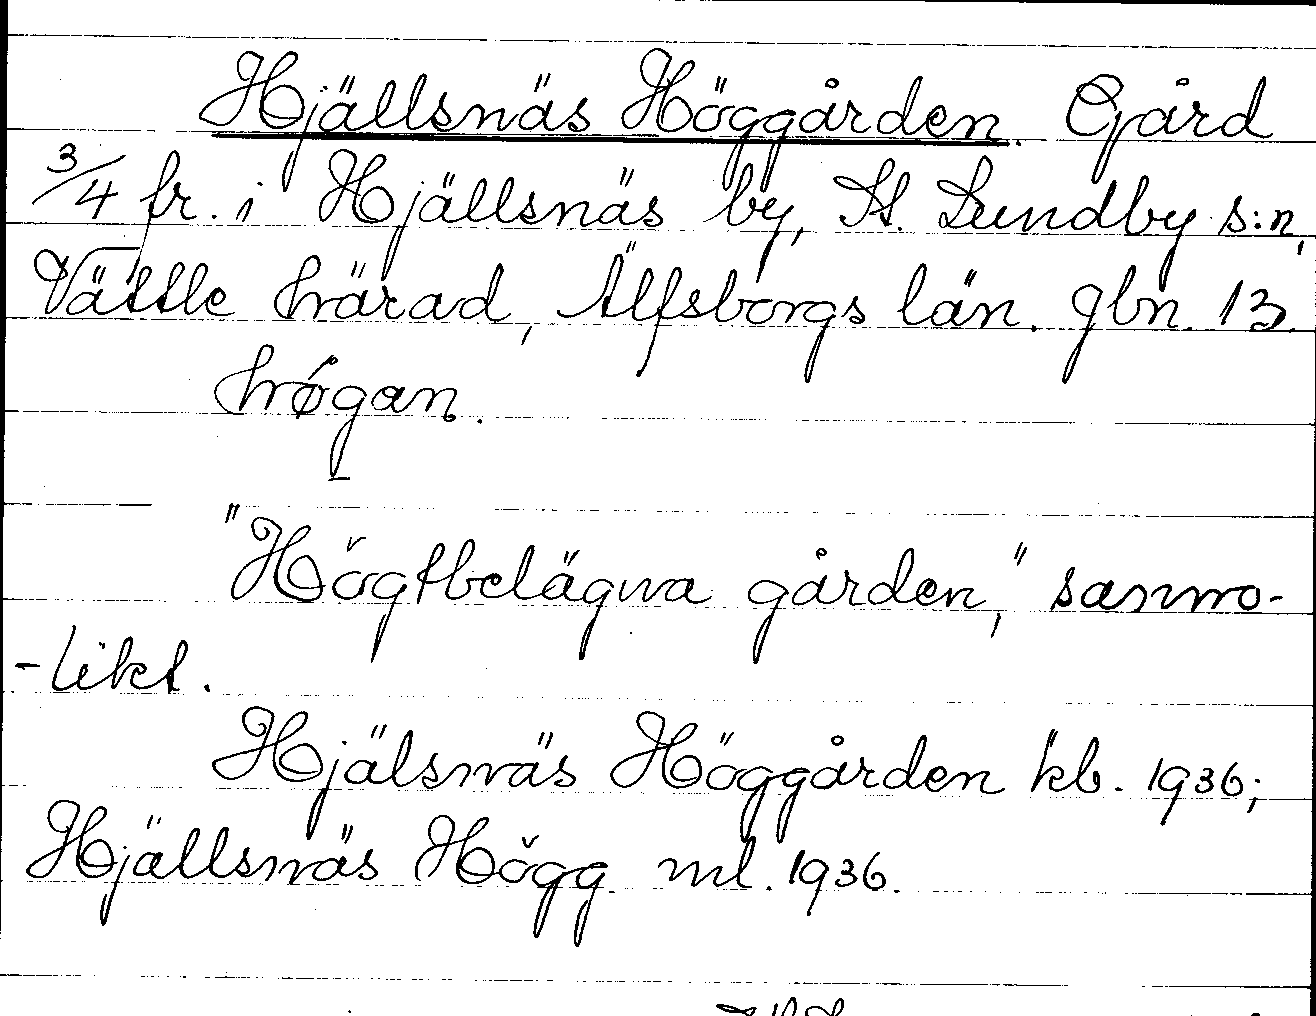 Hjällsnäs Höggården. Gård
3/4 fr. i Hjällsnäs by, St. Lundby s:n,
Vättle härad, Älfsborgs län. gbn. 13.
högan.
"Högtbelägna gården," sanno-
-likt.
Hjälsnäs Höggården kb. 1936;
Hjällsnäs Högg ml. 1936.